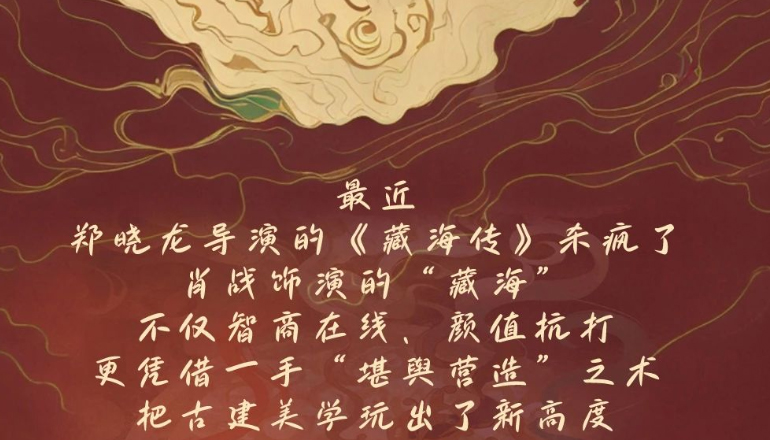 最近
郑晓龙导演的《藏海传》杀疯了
肖战饰演的“藏海”
不仅智商在线、颜值抗打
更凭借一手“堪舆营造”之术
把古建美学玩出了新高度